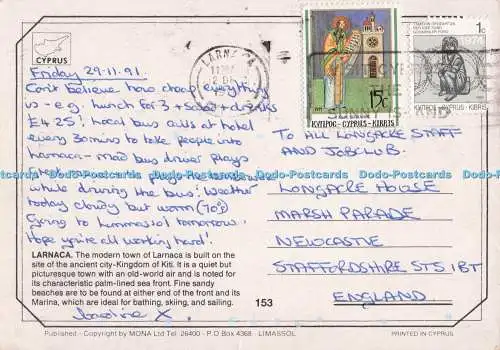 CYPRUS
Friday 29.11.91.
Can't believe how cheap everything
is - e.g. lunch for 3 + salad + drinks
£4.25! Local bus calls at hotel
every 30 mins to take people into
Larnaca - mad bus driver plays
while driving the bus! Weather
today cloudy but warm (70°)
Going to Limmasol tomorrow.
Hope you're all working hard!
LARNACA. The modern town of Larnaca is built on
the site of the ancient city-Kingdom of Kiti. It is a quiet but
picturesque town with an old-world air and is noted for
its characteristic palm-lined sea front. Fine sandy
beaches are to be found at either end of the front and its
Marina, which are ideal for bathing, skiing, and sailing.
X
153
LARNACA
15c
ΚΥΠΡΟΣ-CYPRUS-KIBRIS
1c
ΚΥΠΡΟΣ-CYPRUS-KIBRIS
TO ALL LONGACRE STAFF
AND JOBCLUB.
LONGACRE HOUSE
MARSH PARADE
NEWCASTLE
STAFFORDSHIRE ST5 1BT
ENGLAND
Published - Copyright by MONA Ltd Tel 26400 - P.O Box 4368 LIMASSOL
PRINTED IN CYPRUS
Dodo-Postcards Dodo-Postcards Dodo-Postcards Dodo-Postcards Dodo-Postcards